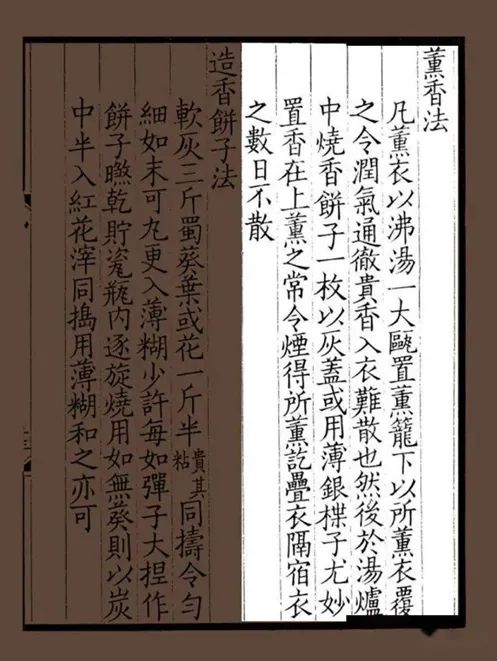 薰香法
凡薰衣以沸湯一大甌置薰籠下以所薰衣覆
之令潤氣通徹貴香入衣難散也然後於湯爐
中燒香餅子一枚以灰蓋或用薄銀楪子尤妙
置香在上薰之常令煙得所薰訖疊衣隔宿衣
之數日不散
造香餅子法
軟灰三斤蜀葵葉或花一斤半貴其粘同擣令勻
細如末可丸更入薄糊少許每如彈子大捏作
餅子㬠乾貯瓷瓶內逐旋燒用如無葵則以炭
中半入紅花滓同搗用薄糊和之亦可